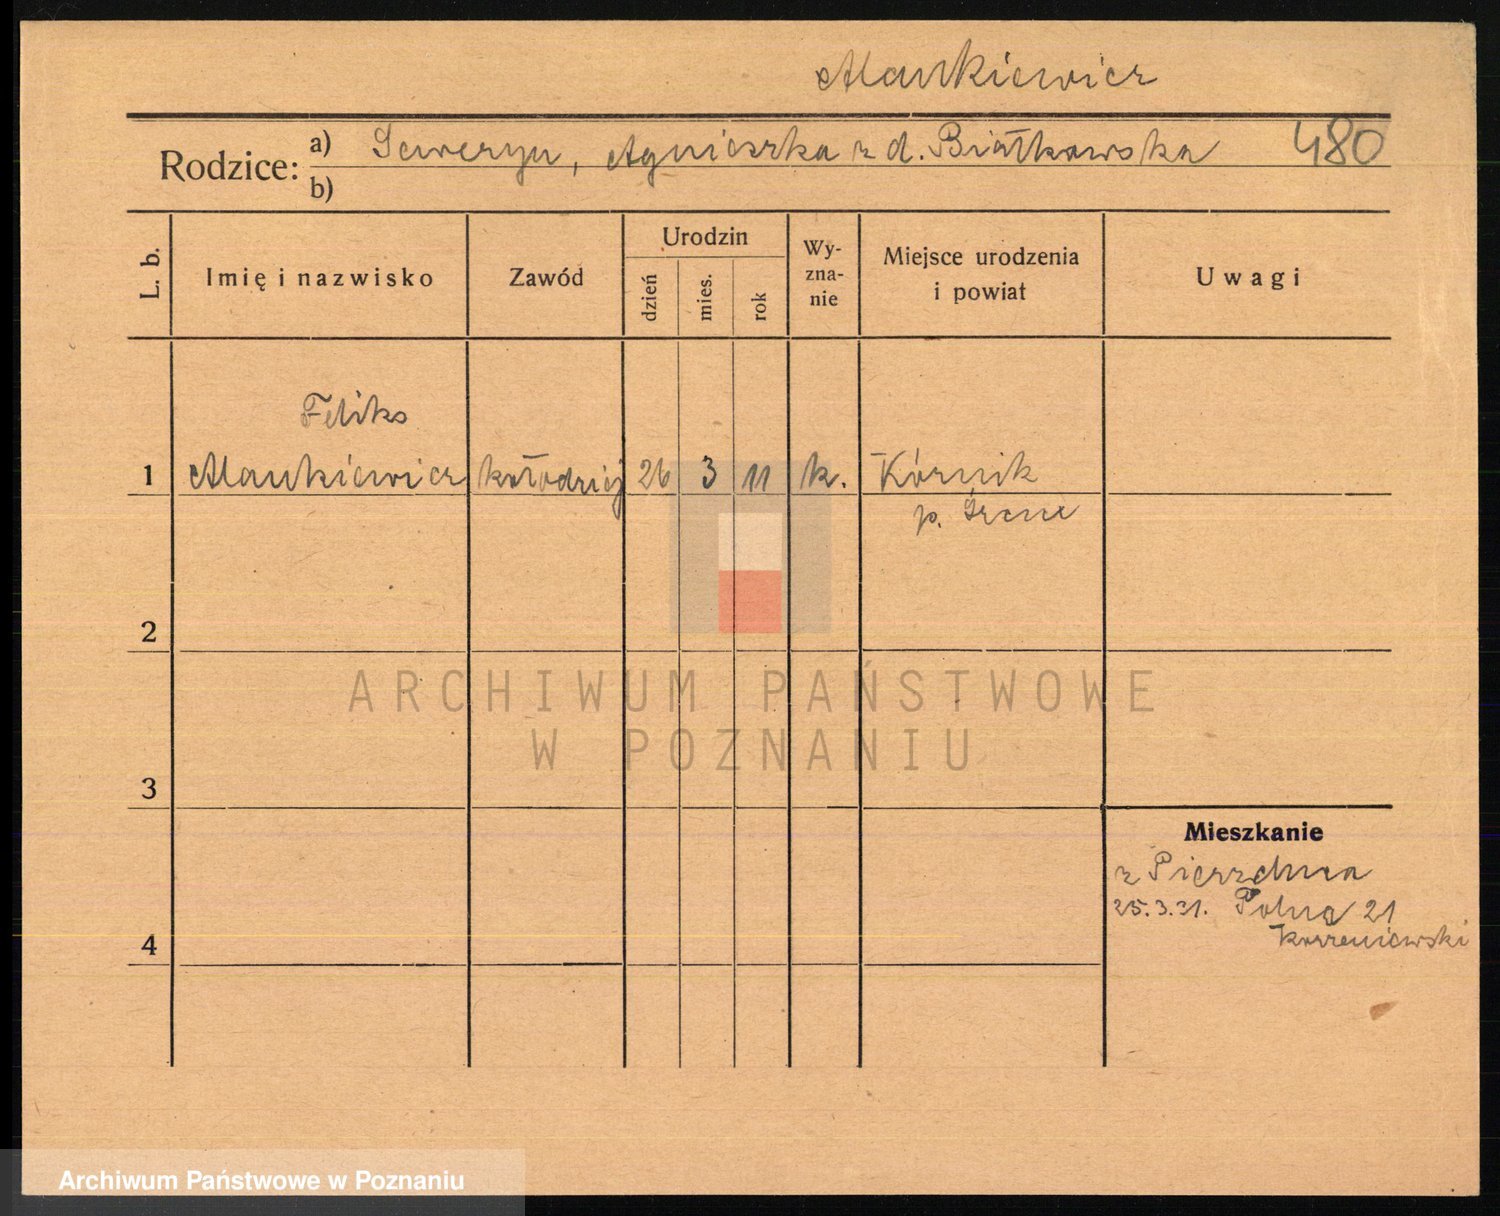 Mankiewicz
Rodzice: a) Seweryn, Agnieszka z d. Białkowska 480
b)
L. b. Imię i nazwisko Zawód Urodzin dzień mies. rok Wy-zna-nie Miejsce urodzenia i powiat Uwagi
Feliks
1 Mankiewicz kołodziej 26 3 11 k. Kórnik
p. Śrem
2
ARCHIWUM PAŃSTWOWE
W POZNANIU
3
Mieszkanie
z Pierzchna
25.3.31. Polna 21
Korzeniewski
4
Archiwum Państwowe w Poznaniu